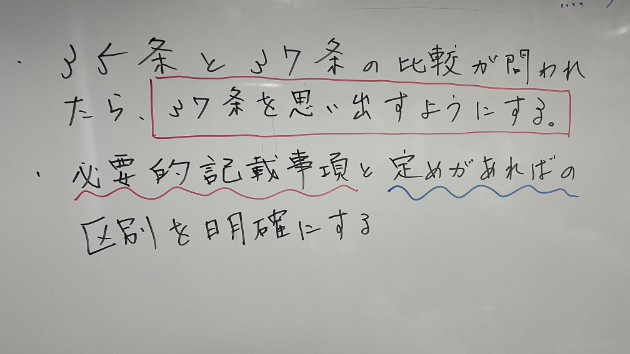 ・35条と37条の比較が問われ
たら、37条を思い出すようにする。
・必要的記載事項と定めがあればの
区別を明確にする